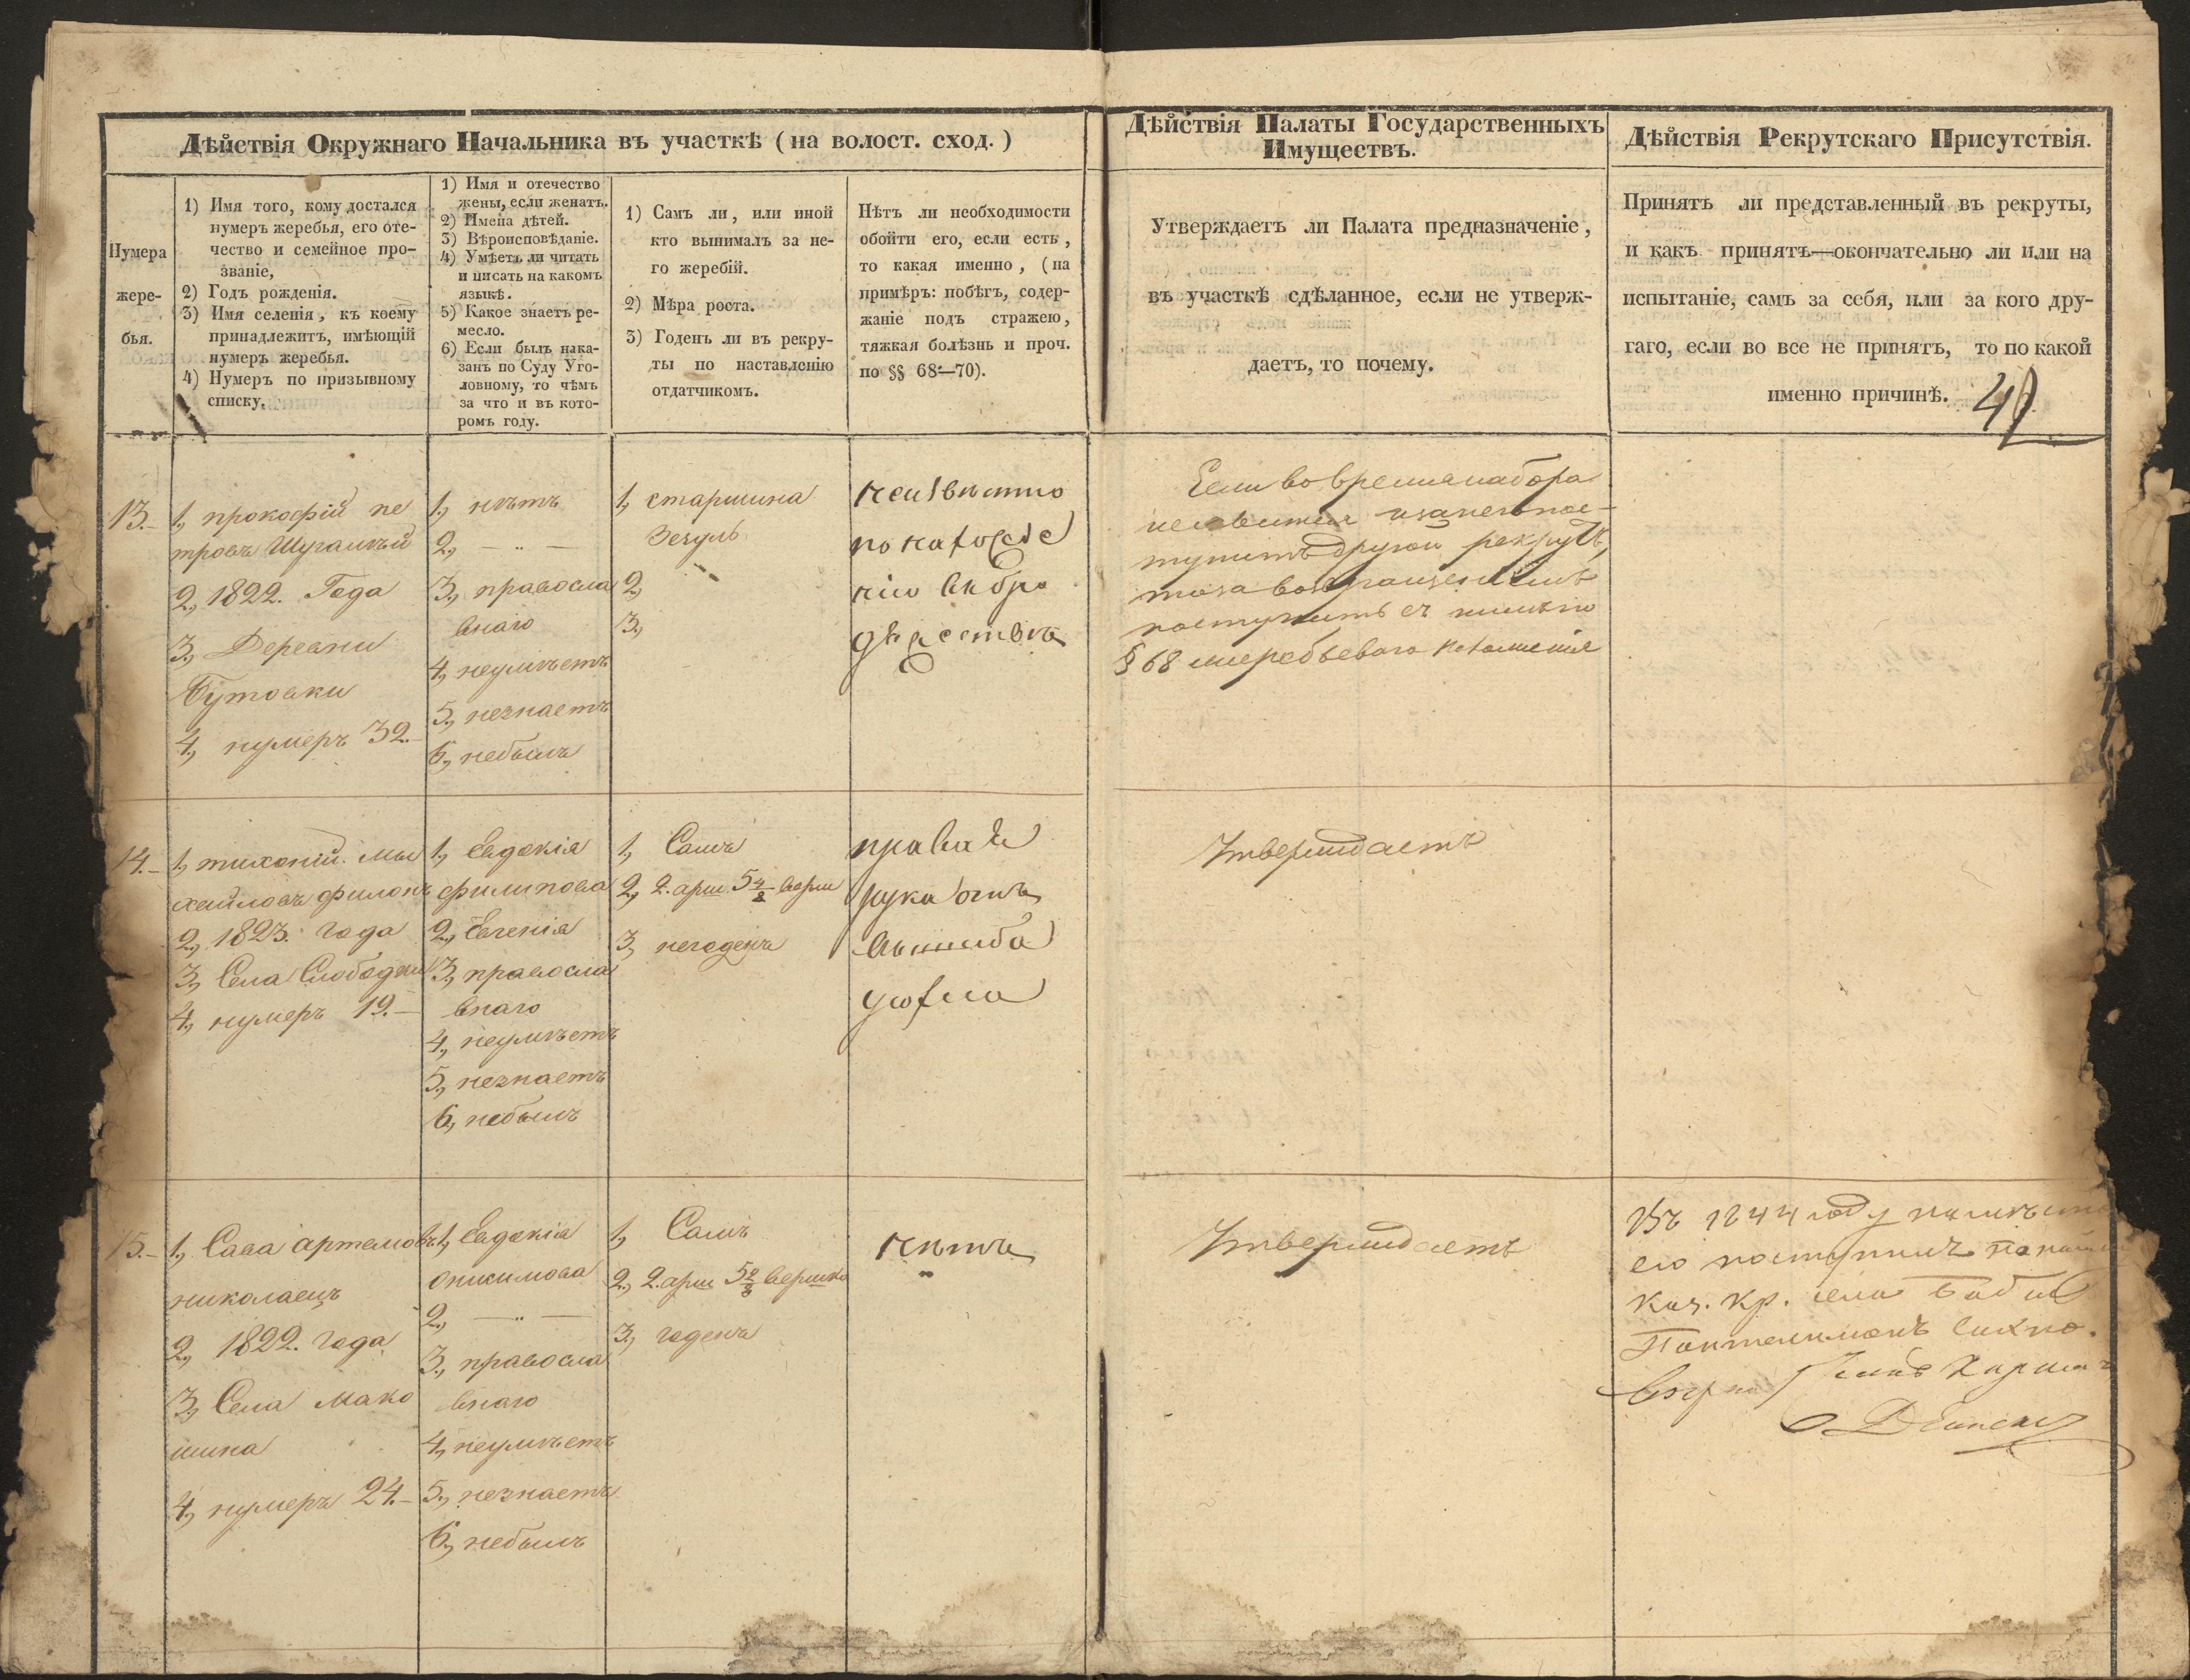 Дѣйствія Окружнаго Начальника въ участкѣ (на волост. сход.)
Нумера
жере-
бья.
1) Имя того, кому достался
нумеръ жеребья, его оте-
чество и семейное про-
званіе,
2) Годъ рожденія.
3) Имя селенія, къ коему
принадлежитъ, имѣющій
нумеръ жеребья.
4) Нумеръ по призывному
списку.
1) Имя и отечество
жены, если женатъ.
2) Имена дѣтей.
3) Вѣроисповѣданіе.
4) Умѣетъ ли читать
и писать на какомъ
языкѣ.
5) Какое знаетъ ре-
месло.
6) Если былъ нака-
занъ по Суду Уго-
ловному, то чѣмъ
за что и въ кото-
ромъ году.
1) Самъ ли, или иной
кто вынималъ за не-
го жеребій.
2) Мѣра роста.
3) Годенъ ли въ рекру-
ты по наставленію
отдатчикомъ.
Нѣтъ ли необходимости
обойти его, если есть,
то какая именно, (на
примѣръ: побѣгъ, содер-
жаніе подъ стражею,
тяжкая болѣзнь и проч.
по §§ 68—70).
Дѣйствія Палаты Государственныхъ
Имуществъ.
Утверждаетъ ли Палата предназначеніе,
въ участкѣ сдѣланное, если не утверж-
даетъ, то почему.
Дѣйствія Рекрутскаго Присутствія.
Принятъ ли представленный въ рекруты,
и какъ принятъ—окончательно ли или на
испытаніе, самъ за себя, или за кого дру-
гаго, если во все не принятъ, то по какой
именно причинѣ.
13.
1, прокофій пе
тровъ
2, 1822. Года
3, Деревни
Бутовки
4, нумеръ 32.
1, нѣтъ
2, — " —
3, правосла
внаго
4, неумѣетъ
5, незнаетъ
6, небылъ
1, старшина
Зезуль
2,
3,
неизвѣстно
по
Если во время набора
неявится и за него пос-
тупитъ другой рекрутъ,
то за возвращеніемъ
поступить съ нимъ по
§ 68 жеребьеваго положенія
14.
1, тихоній ми
хайловъ филонъ
2, 1823. года
3, Села Слободки
4, нумеръ 19.
1, Евдокія
филипова
2, Евгенія
3, правосла
внаго
4, неумѣетъ
5, незнаетъ
6, небылъ
1, Самъ
2, 2. арш 5 4/8 верш
3, негоденъ
правая
рука
Утверждаетъ
15.
1, Сава артемовъ
николаецъ
2, 1822. года
3, Села Мако
шина
4, нумеръ 24.
1, Евдокія
онисимова
2, — " —
3, правосла
внаго
4, неумѣетъ
5, незнаетъ
6, небылъ
1, Самъ
2, 2. арш 5 2/8 вершко
3, годенъ
нѣтъ
Утверждаетъ
Въ 1844 году намѣсто
его поступилъ по найму
каз. кр. села
Пантелимонъ